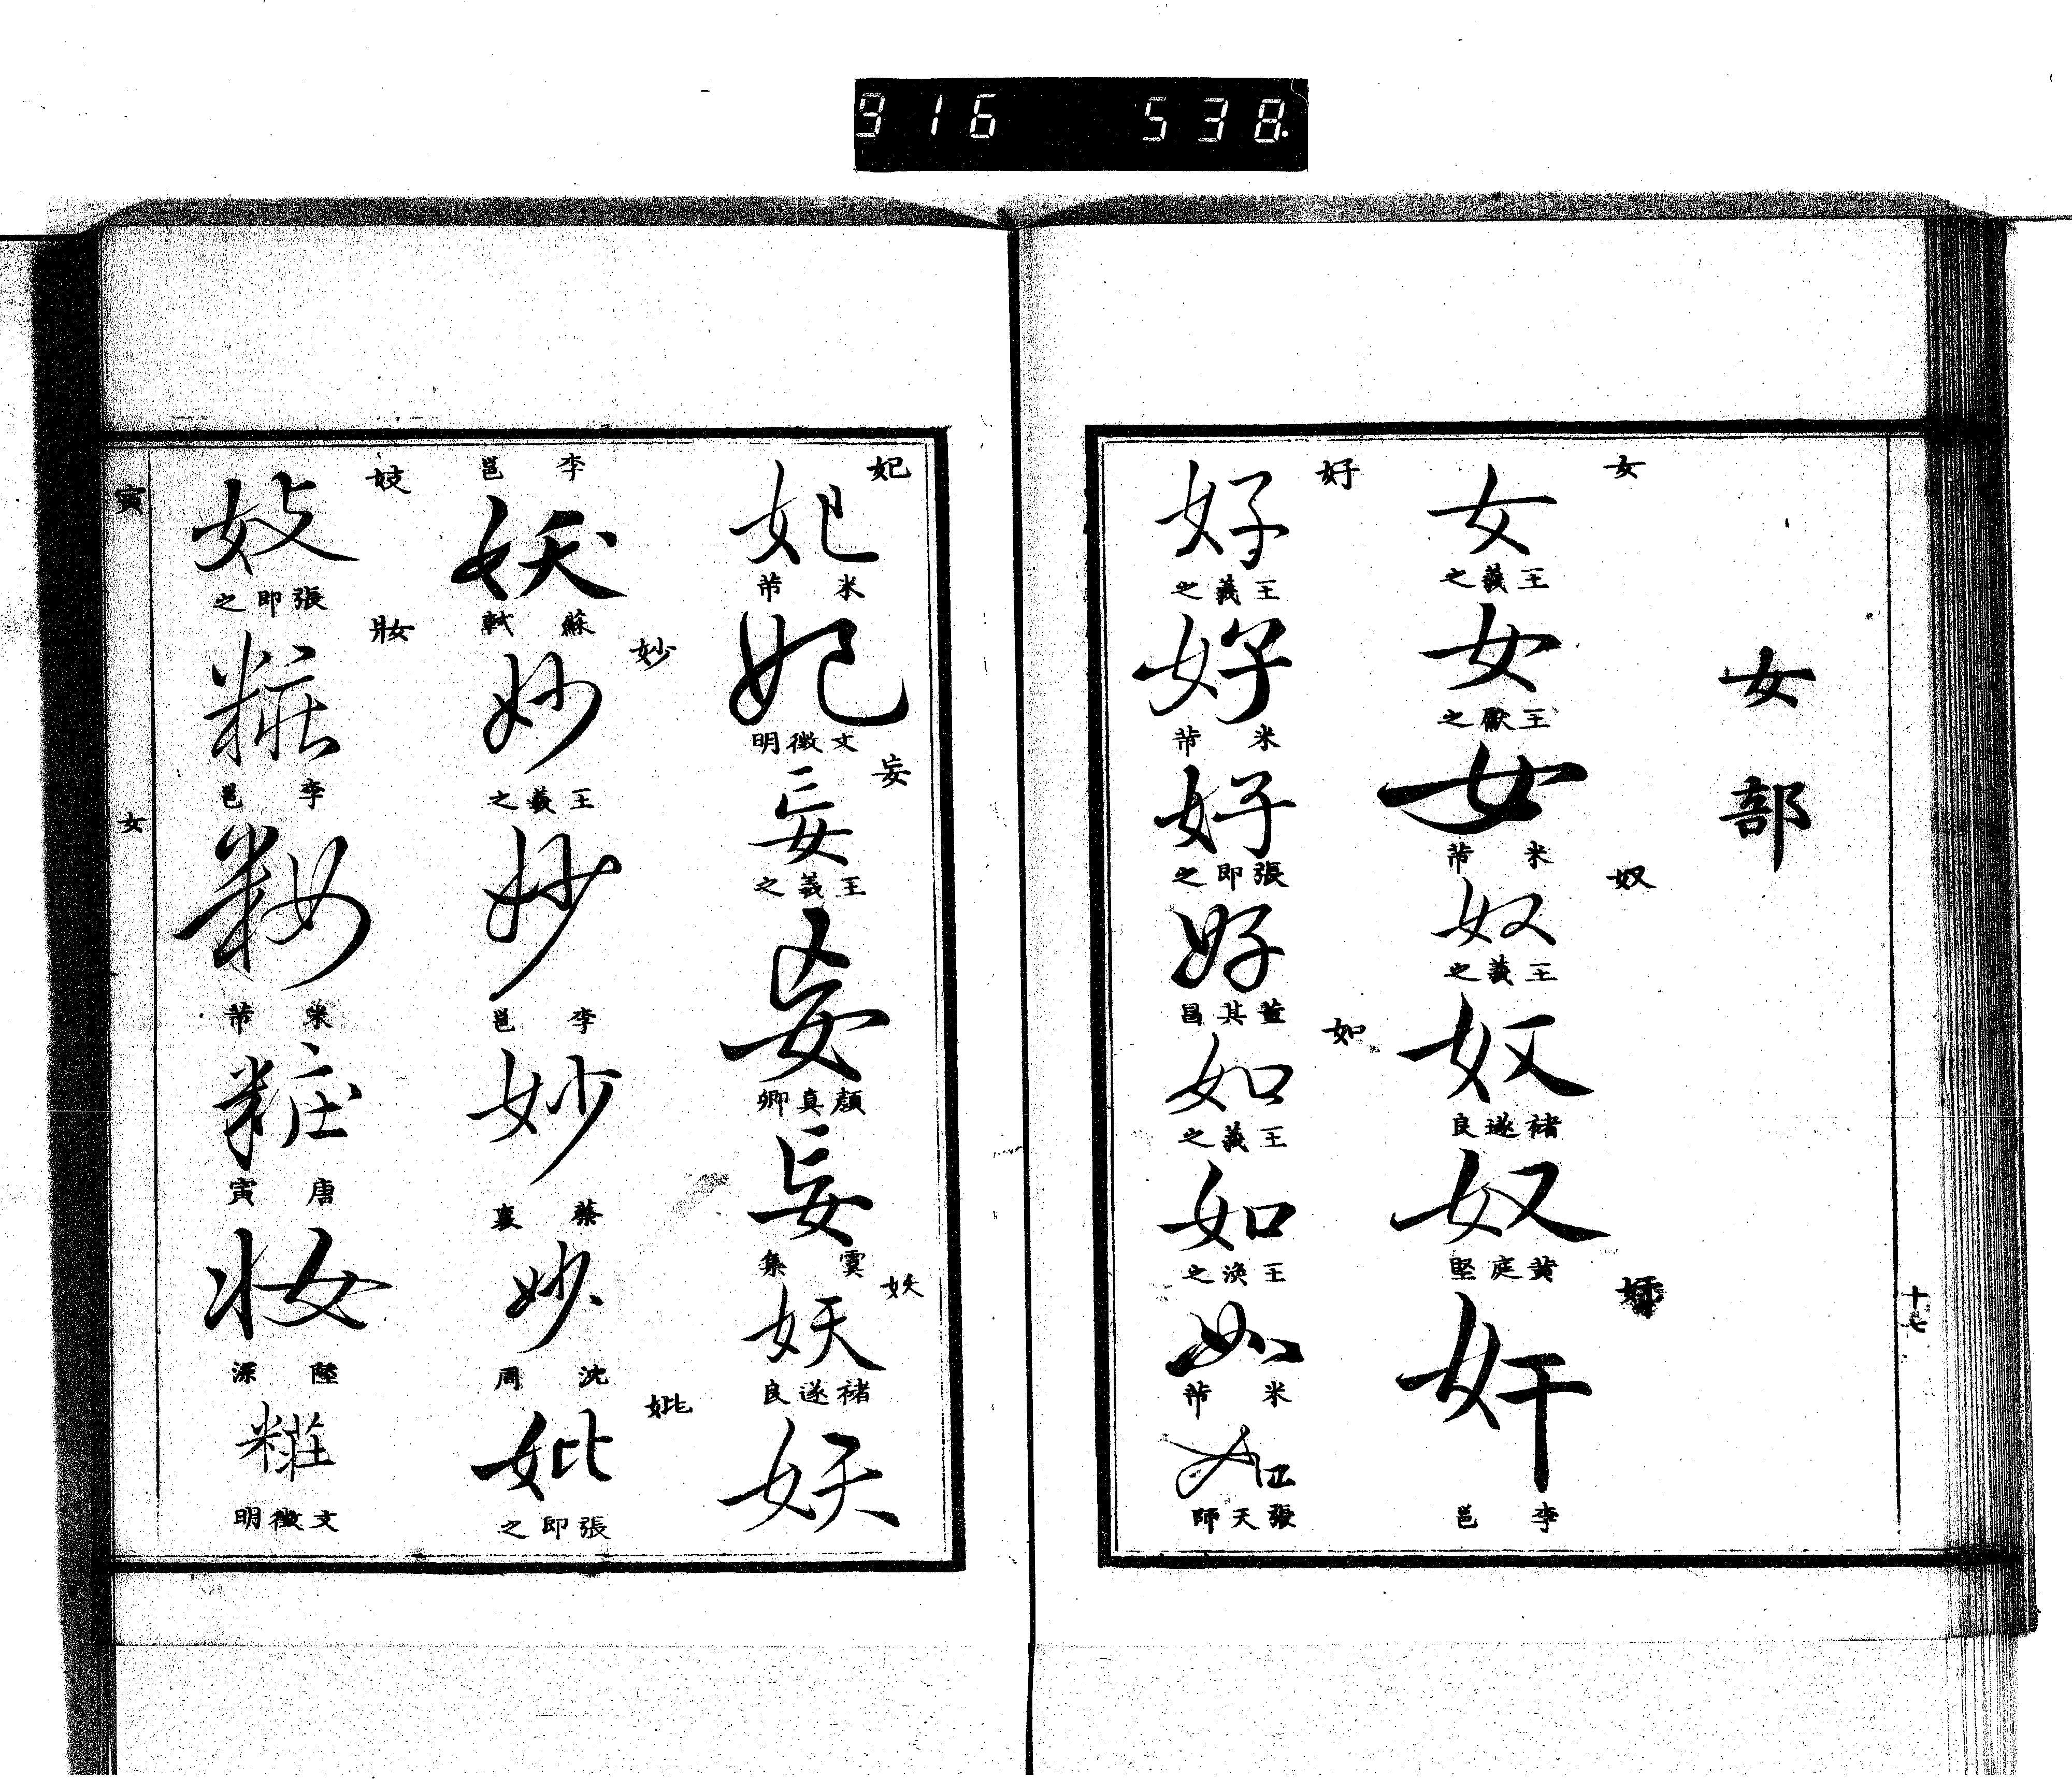 916 538
十七
女部
女
女
王羲之
女
王獻之
女
米芾
奴
奴
王羲之
奴
褚遂良
奴
黄庭堅
奸
李邕
好
好
王羲之
好
米芾
好
張即之
好
董其昌
如
如
王羲之
如
王渙之
如
米芾
如
張天師
妃
妃
米芾
妃
文徴明
妄
妄
王羲之
妄
顔真卿
妄
虞集
妖
妖
褚遂良
妖
李邕
妖
蘇軾
妙
妙
王羲之
妙
李邕
妙
蔡襄
妙
沈周
妣
妣
張即之
妓
妓
張即之
妝
粧
李邕
米芾
粧
唐寅
妝
陸深
糚
文徴明
寅
女